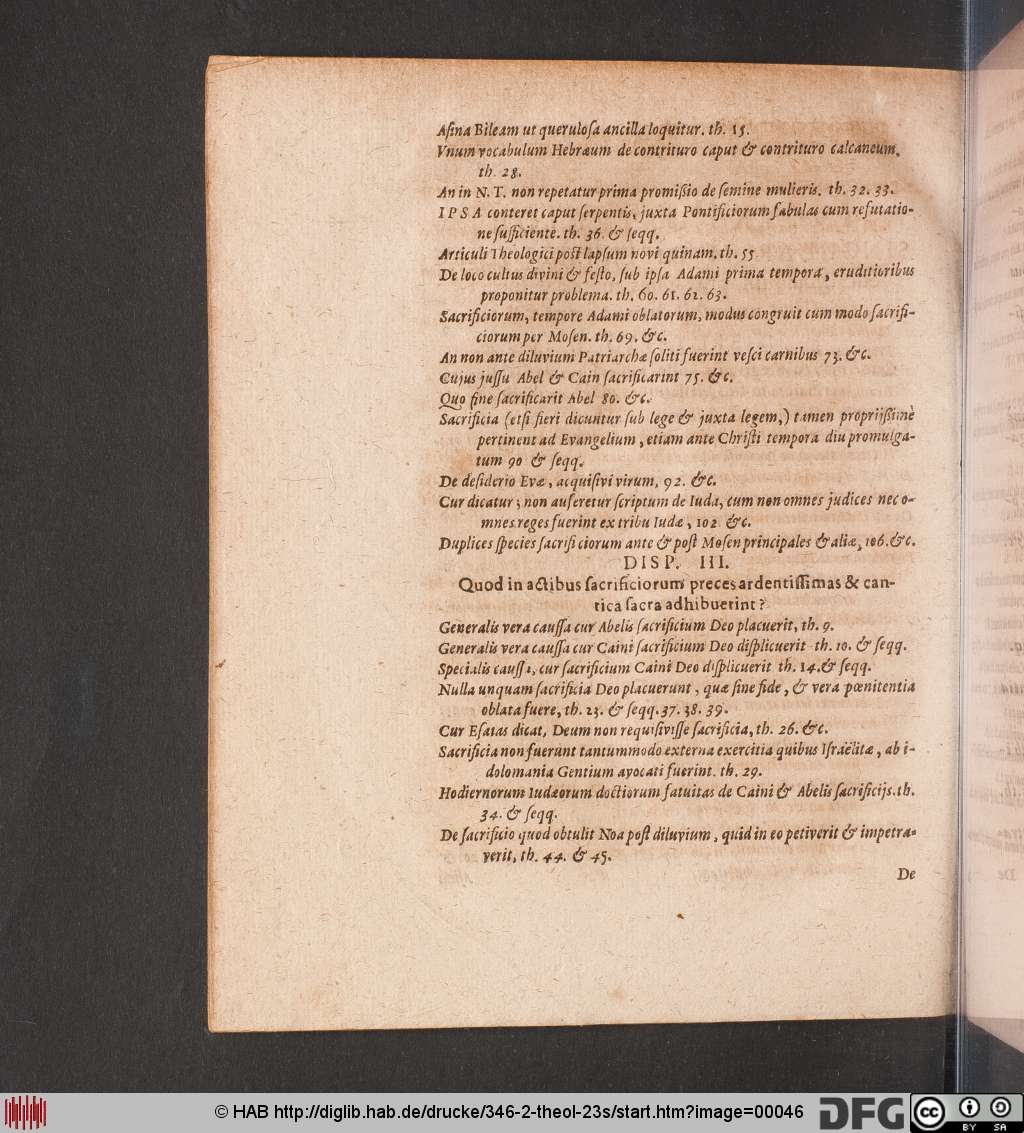 Asina Bileam ut querulosa ancilla loquitur. th. 15.
Vnum vocabulum Hebræum de contrituro caput & contrituro calcaneum.
th. 28.
An in N. T. non repetatur prima promißio de semine mulieris. th. 32. 33.
IPSA conteret caput serpentis, juxta Pontificiorum fabulas cum refutatio-
ne sufficiente. th. 36. & seqq.
Articuli Theologici post lapsum novi quinam. th. 55
De loco cultus divini & festo, sub ipsa Adami prima tempora, eruditioribus
proponitur problema. th. 60. 61. 62. 63.
Sacrificiorum, tempore Adami oblatorum, modus congruit cum modo sacrifi-
ciorum per Mosen. th. 69. &c.
An non ante diluvium Patriarchæ soliti fuerint vesci carnibus 73. &c.
Cujus jussu Abel & Cain sacrificarint 75. &c.
Quo fine sacrificarit Abel 80. &c.
Sacrificia (etsi fieri dicuntur sub lege & juxta legem,) tamen proprijßimè
pertinent ad Evangelium, etiam ante Christi tempora diu promulga-
tum 90 & seqq.
De desiderio Evæ, acquisivi virum, 92. &c.
Cur dicatur; non auferetur scriptum de Iuda, cum non omnes judices nec o-
mnes reges fuerint ex tribu Iudæ, 102 &c.
Duplices species sacrificiorum ante & post Mosen principales & aliæ, 106. &c.
DISP. III.
Quod in actibus sacrificiorum preces ardentissimas & can-
tica sacra adhibuerint?
Generalis vera caussa cur Abelis sacrificium Deo placuerit, th. 9.
Generalis vera caussa cur Caini sacrificium Deo displicuerit th. 10. & seqq.
Specialis caussa, cur sacrificium Caini Deo displicuerit th. 14. & seqq.
Nulla unquam sacrificia Deo placuerunt, quæ sine fide, & vera pœnitentia
oblata fuere, th. 23. & seqq. 37. 38. 39.
Cur Esaias dicat, Deum non requisivisse sacrificia, th. 26. &c.
Sacrificia non fuerunt tantummodo externa exercitia quibus Israëlitæ, ab i-
dolomania Gentium avocati fuerint. th. 29.
Hodiernorum Iudæorum doctiorum fatuitas de Caini & Abelis sacrificijs. th.
34. & seqq.
De sacrificio quod obtulit Noa post diluvium, quid in eo petiverit & impetra-
verit, th. 44. & 45.
De
© HAB http://diglib.hab.de/drucke/346-2-theol-23s/start.htm?image=00046
DFG
cc BY SA